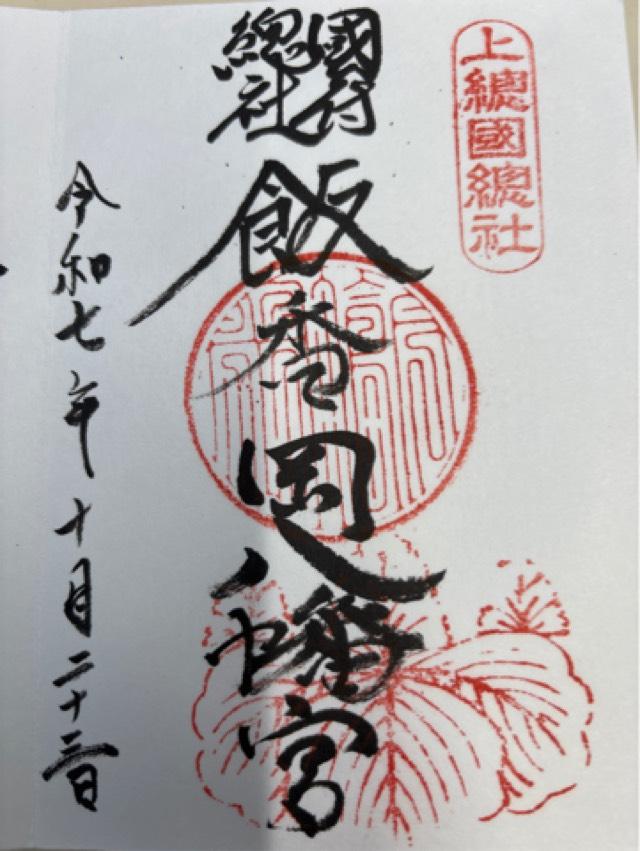 上總國總社
國府
總社
飯香岡八幡宮
令和七年十月二十三日